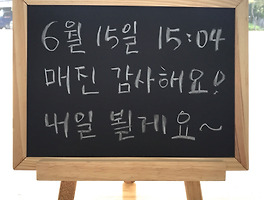 6월 15일 15:04
매진 감사해요!
내일 뵐게요~